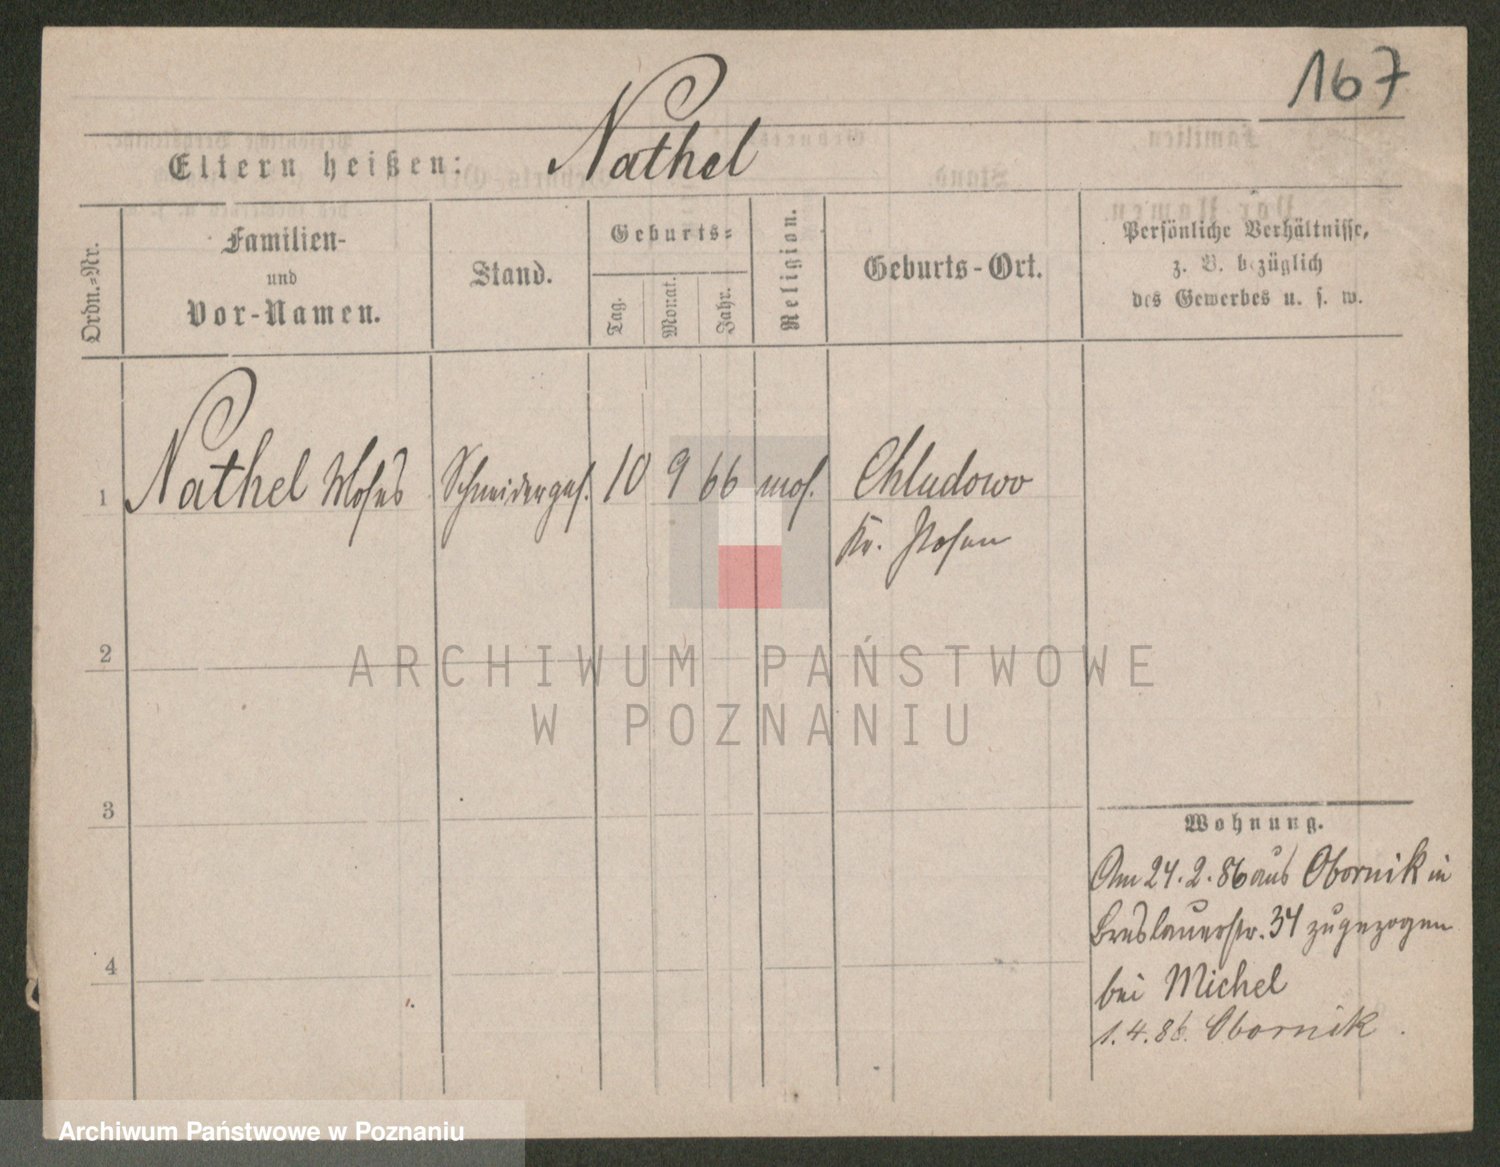 167
Nathel
Eltern heißen:
Ordn.-Nr.
Familien-
und
Vor-Namen.
Stand.
Geburts-
Tag.
Monat.
Jahr.
Religion.
Geburts-Ort.
Persönliche Verhältnisse,
z. B. bezüglich
des Gewerbes u. s. w.
1 Nathel Moses Schneiderges. 10 9 66 mos. Chludowo
Kr. Posen
2
ARCHIWUM PAŃSTWOWE
W POZNANIU
3
Wohnung.
Am 24.2.86 aus Obornik in
Breslauerstr. 34 zugezogen
bei Michel
4
1.4.86. Obornik.
Archiwum Państwowe w Poznaniu